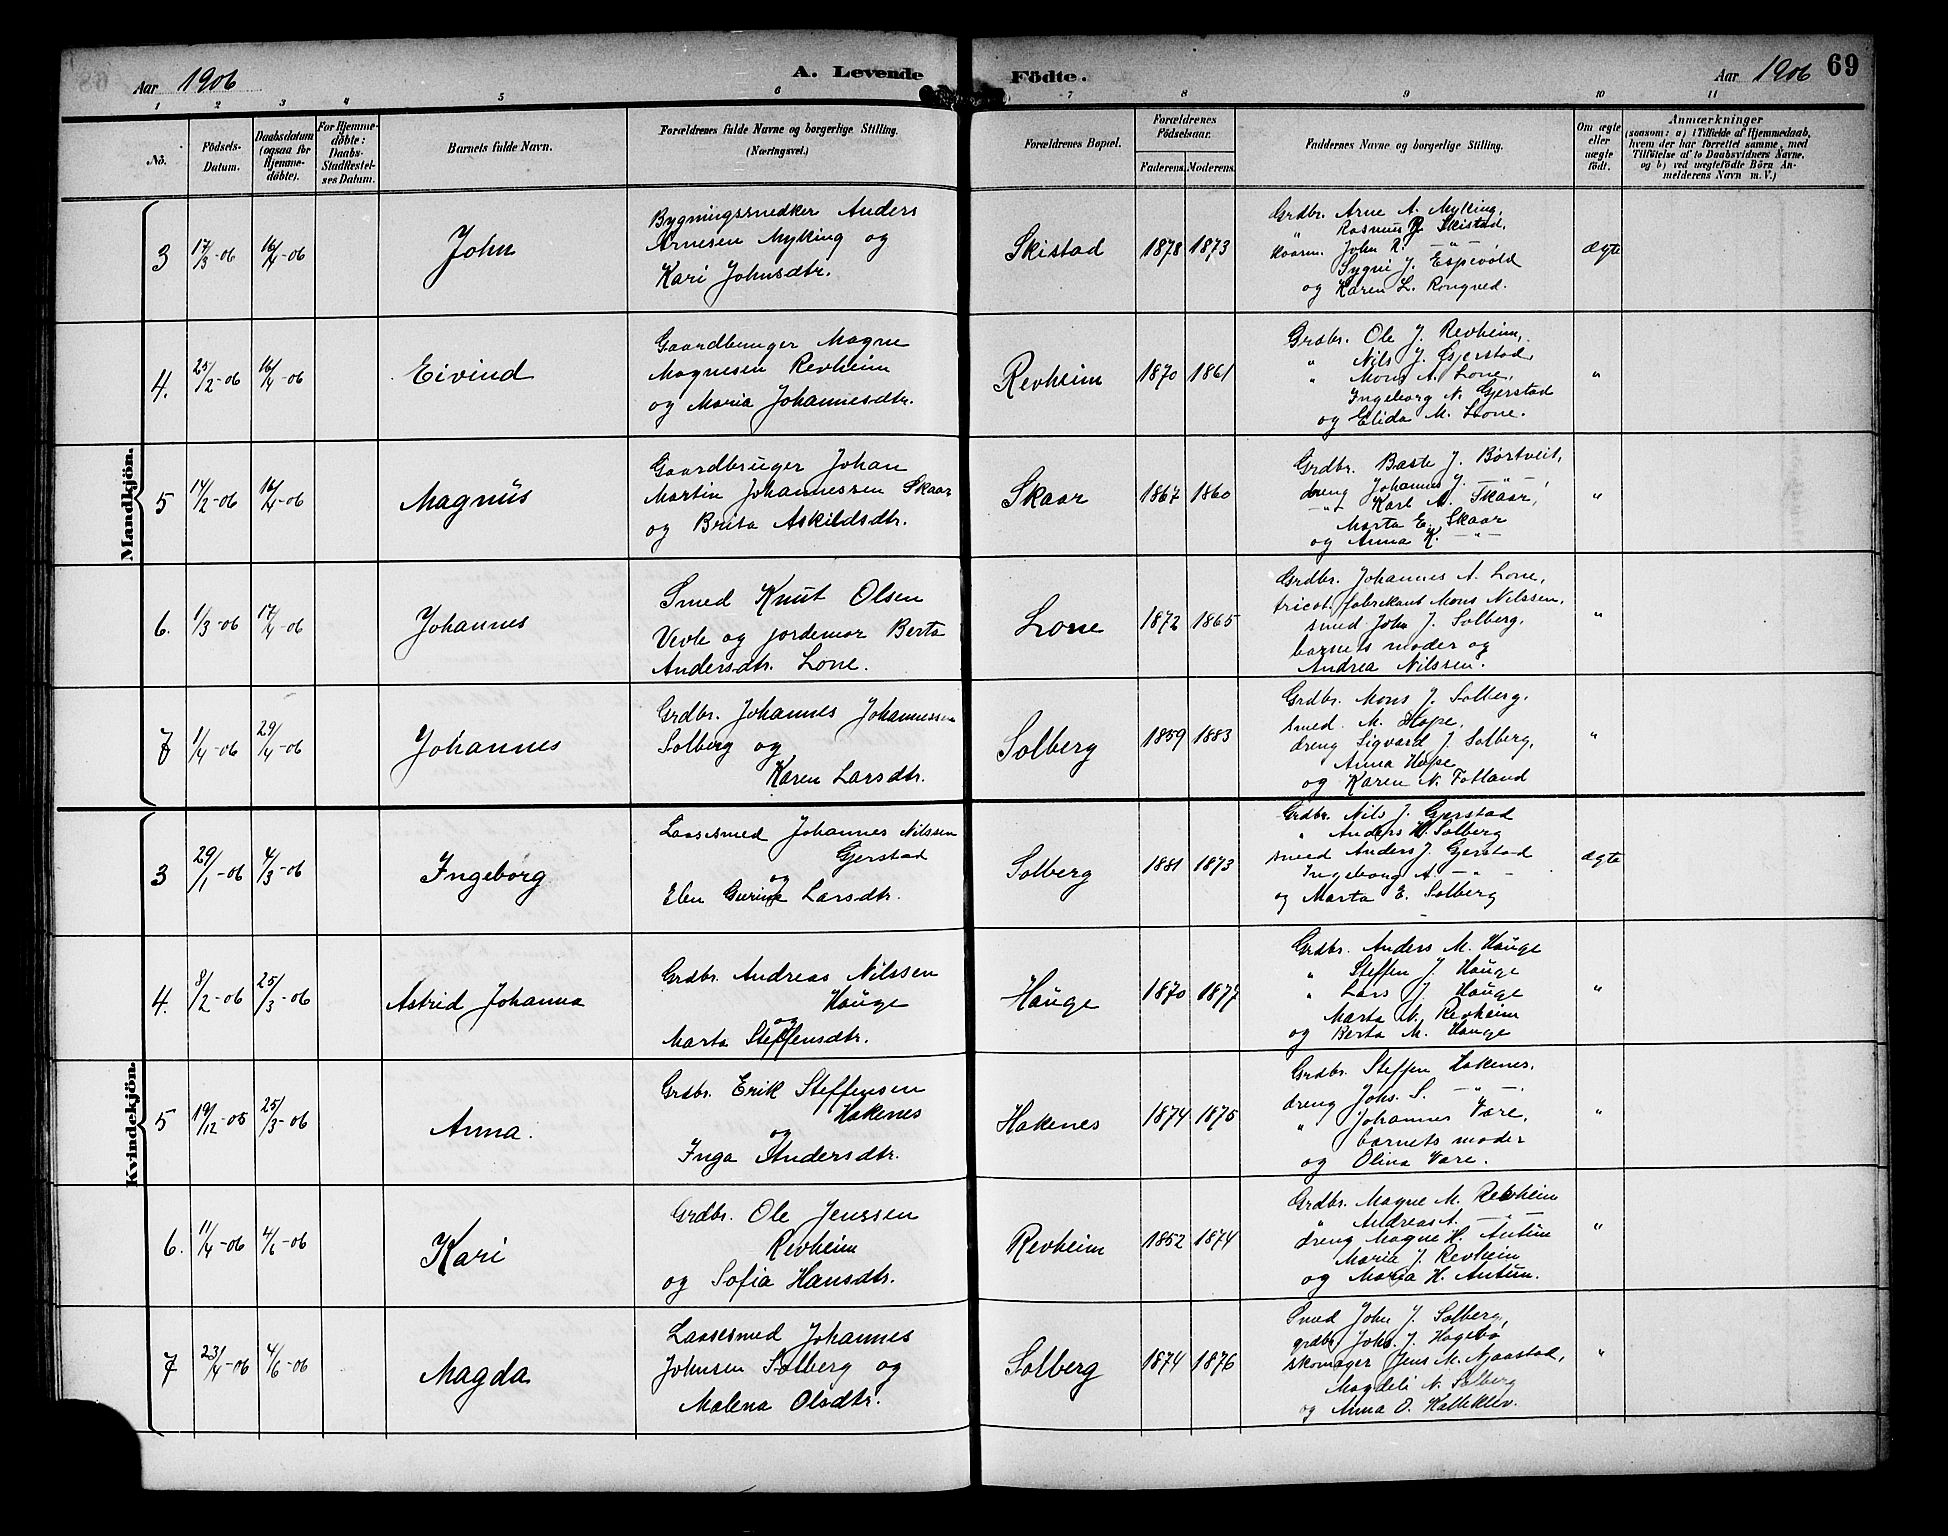 Aar 1906
A. Levende Födte.
Aar 1906 69
1 2 3 4 5 6 7 8 9 10 11
No.
Födsels-Datum.
Daabsdatum (ogsaa for Hjemme-döbte).
For Hjemme-döbte: Daabs-Stadfæstel-ses Datum.
Barnets fulde Navn.
Forældrenes fulde Navne og borgerlige Stilling.
(Næringsvei.)
Forældrenes Bopæl.
Forældrenes Födselsaar.
Faderens. Moderens.
Faddernes Navne og borgerlige Stilling.
Om ægte eller uægte födt.
Anmærkninger
(saasom: a) i Tilfælde af Hjemmedaab,
hvem der har forrettet samme, med
Tilföielse af to Daabsvidners Navne,
og b) ved uægtefödte Börn An-
melderens Navn m. V.)
Mandkjön.
3 17/3-06 16/4-06 John
Bygningssnedker Anders
Arnesen Myking og
Kari Johnsdtr.
Skistad 1878 1873
Grdbr. Arne A. Myking,
" Rasmus R. Skistad,
John R. —"—
Sygni J. Espevold
og Karen L. Rongved.
ægte
4. 25/2-06 16/4-06 Eivind
Gaardbruger Magne
Magnesen Revheim
og Maria Johannesdtr.
Revheim 1870 1861
Grdbr. Ole J. Revheim,
" Nils J. Gjerstad,
" Mons A. Lone,
Ingeborg N. Gjerstad
og Elida M. Lone.
"
5 14/2-06 16/4-06 Magnus
Gaardbruger Johan
Martin Johannessen Skaar
og Brita Askildsdtr.
Skaar 1867 1860
Grdbr. Baste J. Børtveit,
dreng Johannes J. —"—
—"— Karl A. Skaar,
Marta E. Skaar
og Anna K. —"—
"
6. 1/3-06 17/4-06 Johannes
Smed Knut Olsen
Vevle og jordemor Berta
Andersdtr. Lone.
Lone 1872 1865
Grdbr. Johannes A. Lone,
tricot. fabrikant Mons Nilssen,
smed John J. Solberg,
barnets moder og
Andrea Nilssen.
"
7 1/4-06 29/4-06 Johannes
Grdbr. Johannes Johannessen
Solberg og
Karen Larsdtr.
Solberg 1859 1883
Grdbr. Mons J. Solberg,
smed. M. Hope,
dreng Sigvard J. Solberg,
Anna Hope
og Karen N. Fotland
"
Kvindekjön.
3 29/1-06 4/3-06 Ingeborg
Laasesmed Johannes Nilssen
Gjerstad
og
Elen Gurine Larsdtr.
Solberg 1881 1873
Grdbr. Nils J. Gjerstad
" Anders H. Solberg
smed Anders J. Gjerstad
Ingeborg A. —"—
og Marta E. Solberg
ægte
4. 8/2-06 25/3-06 Astrid Johanna
Grdbr. Andreas Nilssen
Hauge
og
Marta Steffensdtr.
Hauge 1870 1877
Grdbr. Anders M. Hauge
" Steffen J. Hauge
" Lars J. Hauge
Marta N. Revheim
og Berta M. Hauge
"
5 19/12-05 25/3-06 Anna.
Grdbr. Erik Steffensen
Hakenes
og
Inga Andersdtr.
Hakenes 1874 1875
Grdbr. Steffen Hakenes,
dreng Johs. S. —"—.
" Johannes Vare,
barnets moder
og Olina Vare.
"
6. 11/4-06 4/6-06 Kari
Grdbr. Ole Jenssen
Revheim
og Sofia Hansdtr.
Revheim 1852 1874
Grdbr. Magne M. Revheim
" Andreas A. —"—
dreng Magne H. Antun
Maria J. Revheim
og Maria H. Antun.
"
7 23/4-06 4/6-06 Magda
Laasesmed Johannes
Johnsen Solberg og
Malena Olsdtr.
Solberg 1874 1876
Smed John J. Solberg,
grdbr. Johs. J. Hagebø
skomager Jens M. Njaastad,
Magdeli N. Solberg
og Anna O. Kalleklev.
"